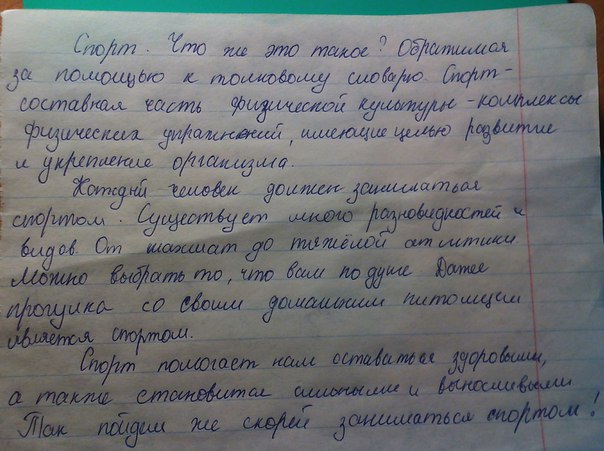 Спорт. Что же это такое? Обратимся
за помощью к толковому словарю. Спорт-
составная часть физической культуры - комплексы
физических упражнений, имеющие целью развитие
и укрепление организма.
Каждый человек должен заниматься
спортом. Существует много разновидностей и
видов. От шахмат до тяжёлой атлетики.
Можно выбрать то, что вам по душе. Даже
прогулка со своим домашним питомцем
является спортом.
Спорт помогает нам оставаться здоровыми,
а также становится сильными и выносливыми
Так пойдем же скорей заниматься спортом!